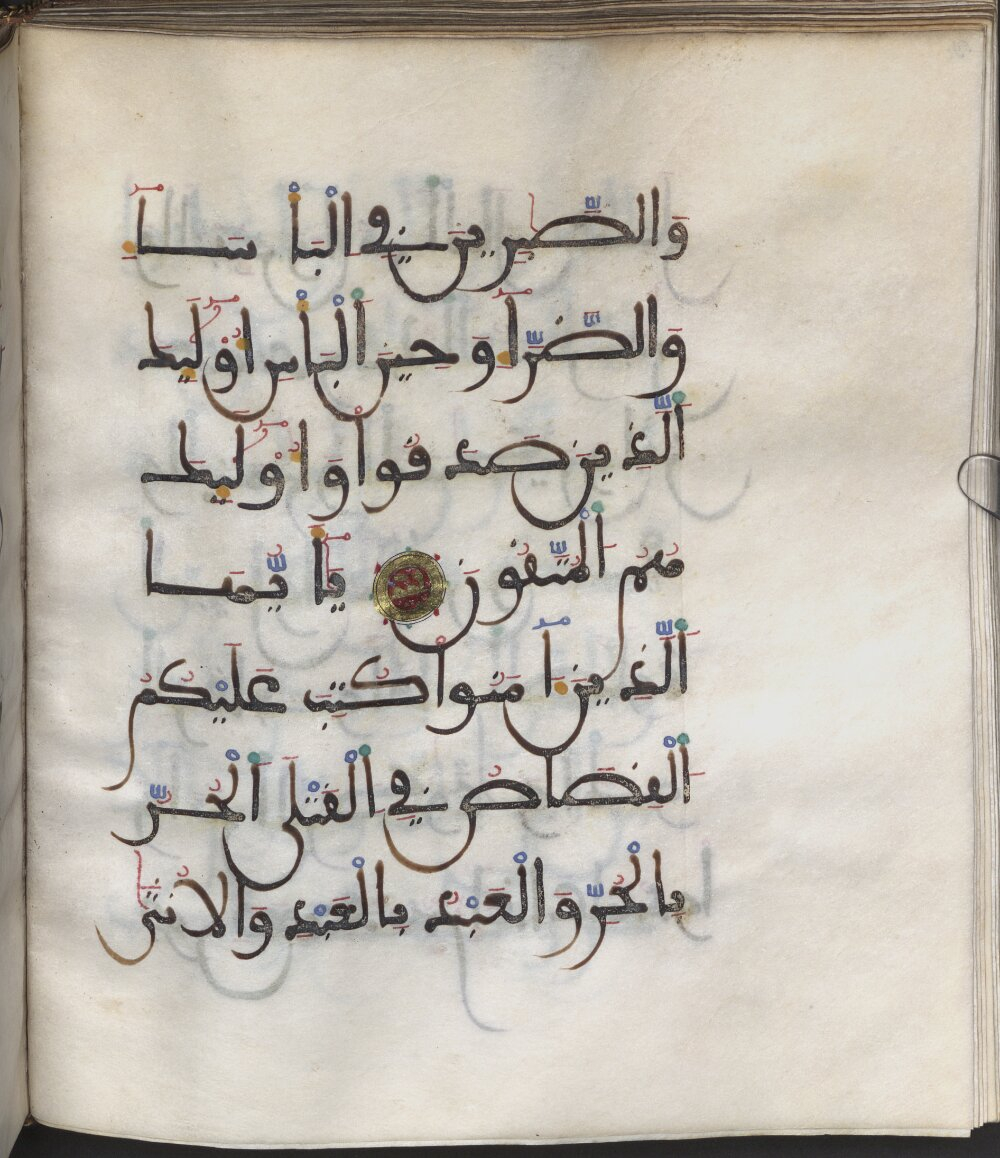 وَالصَّٰبِرِينَ فِي الْبَأْسَآءِ
وَالضَّرَّآءِ وَحِينَ الْبَأْسِ أُوْلَٰٓئِكَ
الَّذِينَ صَدَقُواْ وَأُوْلَٰٓئِكَ
هُمُ الْمُتَّقُونَ يَٰٓأَيُّهَا
الَّذِينَ ءَامَنُواْ كُتِبَ عَلَيْكُمُ
الْقِصَاصُ فِي الْقَتْلَى الْحُرُّ
بِالْحُرِّ وَالْعَبْدُ بِالْعَبْدِ وَالْأُنثَىٰ